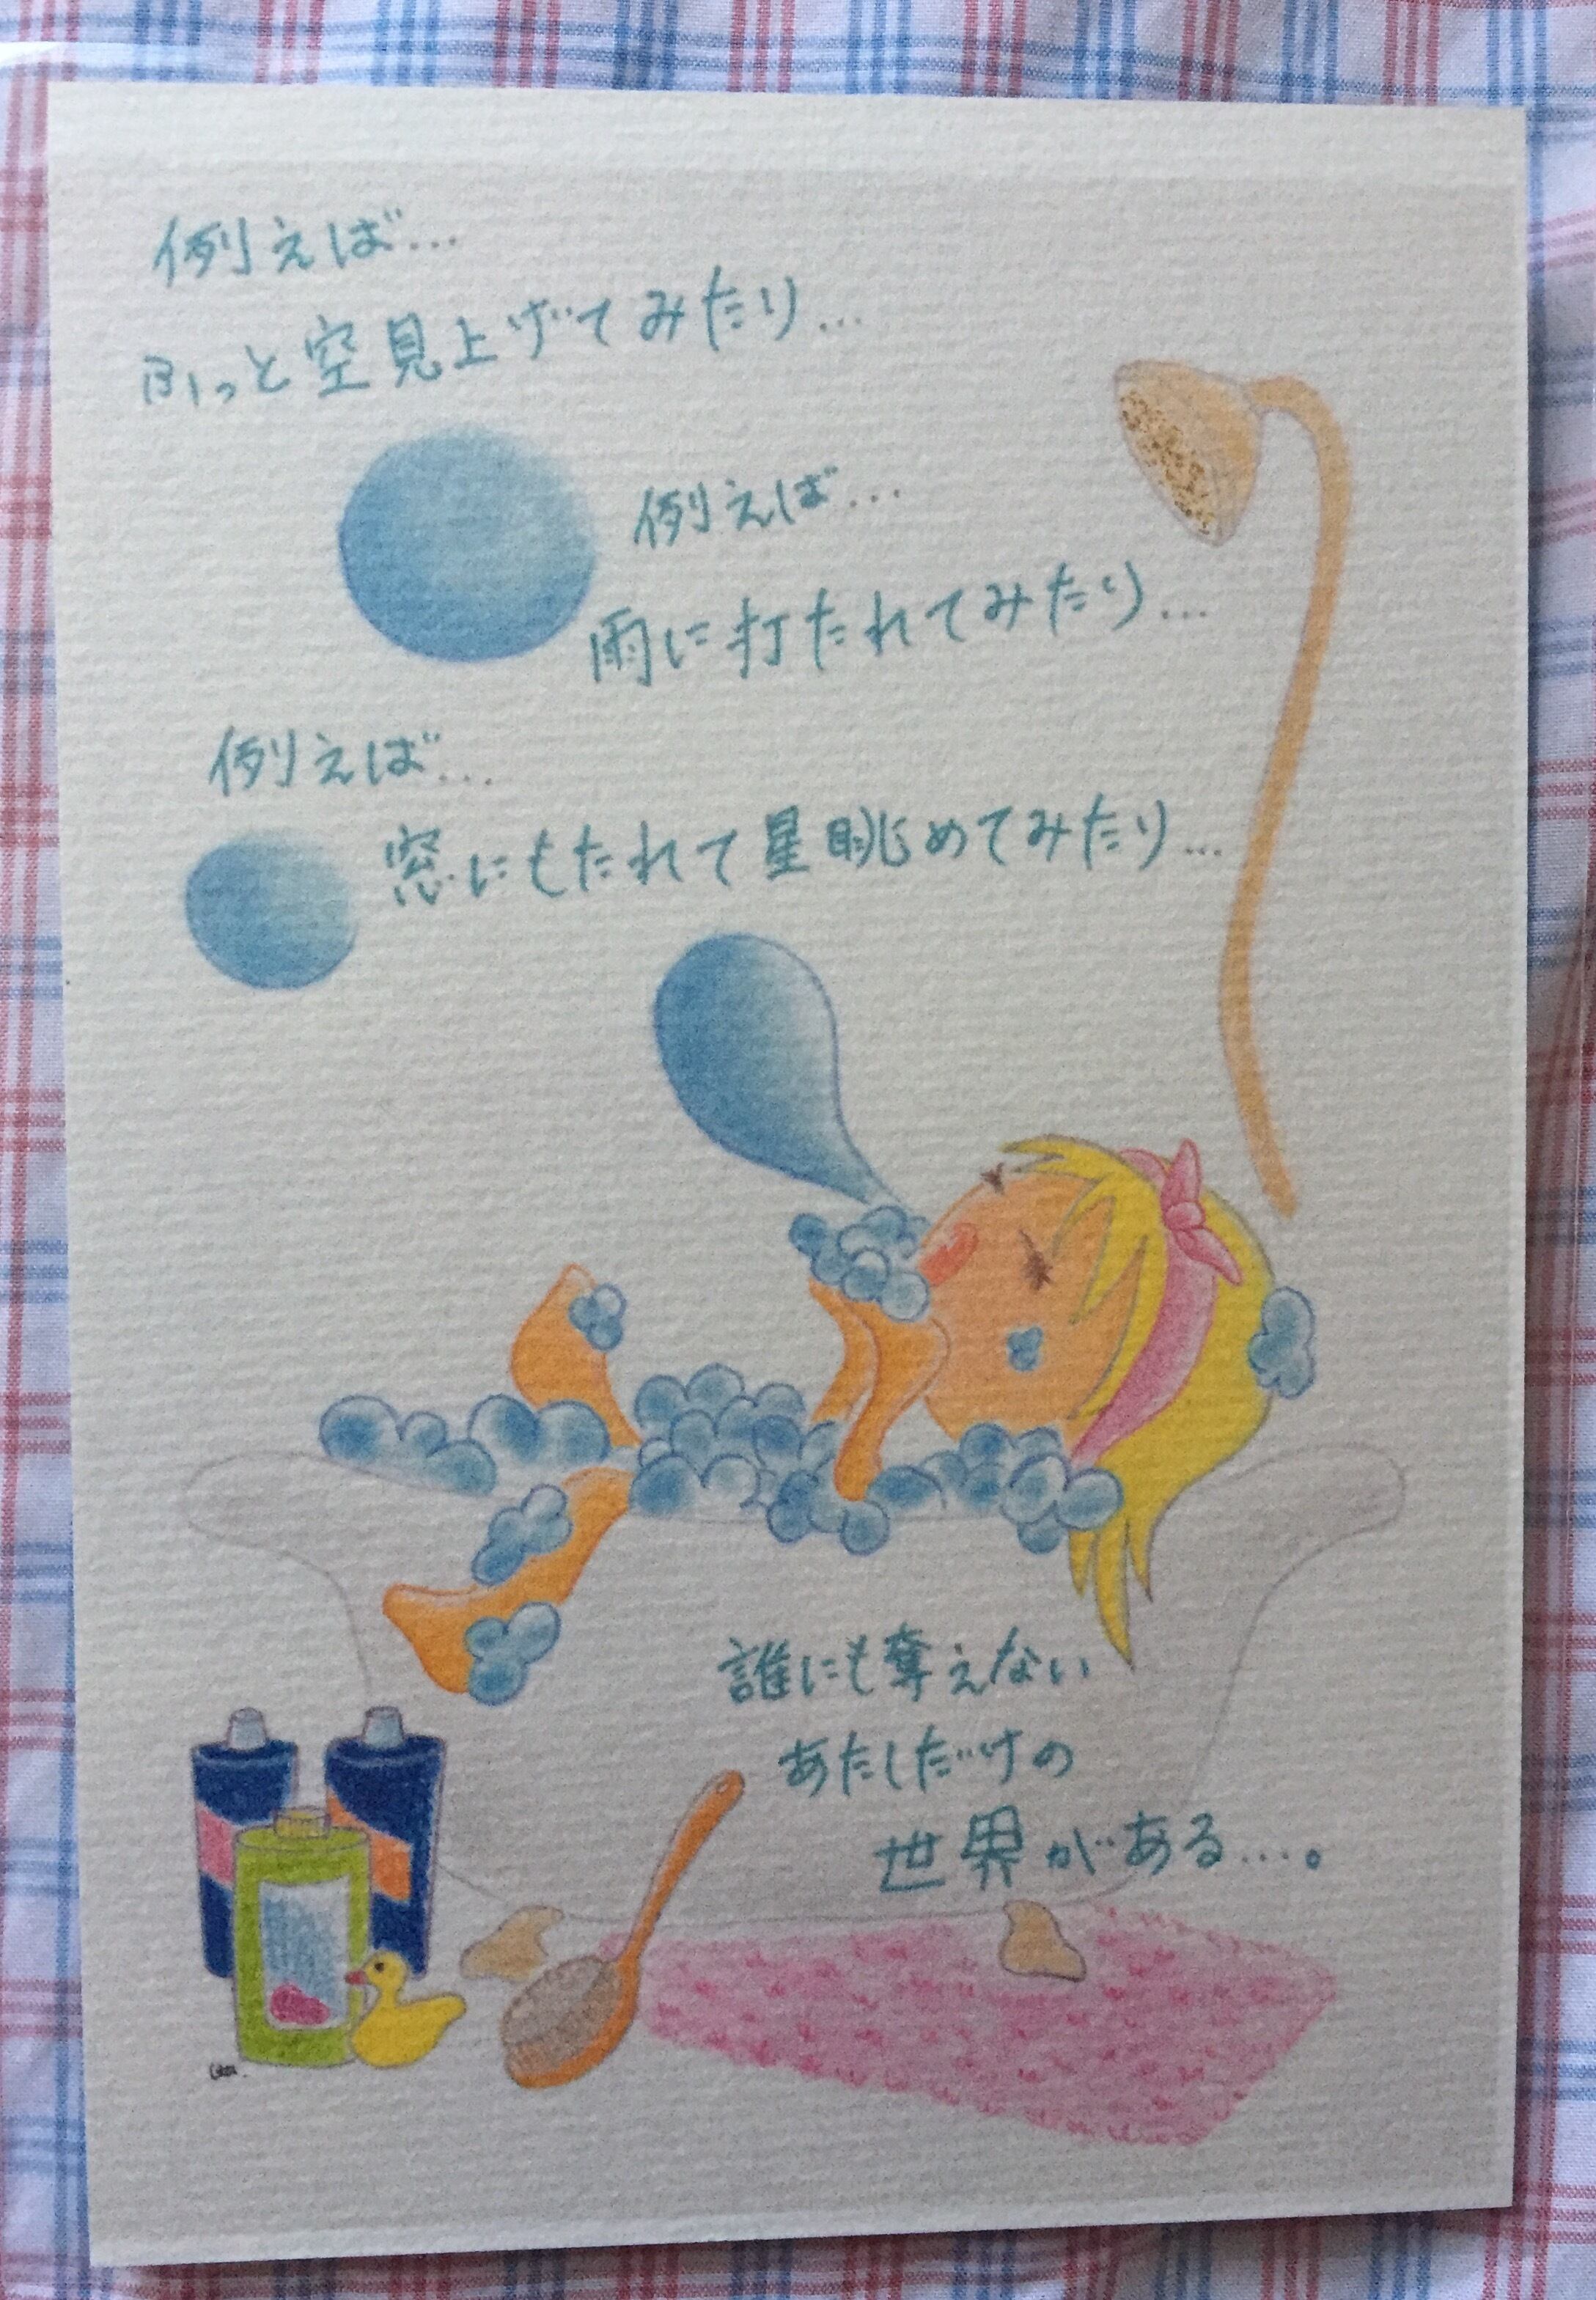 例えば...
ふっと空見上げてみたり...
例えば...
雨に打たれてみたり...
例えば...
窓にもたれて星眺めてみたり...
誰にも奪えない
あたしだけの
世界がある....。